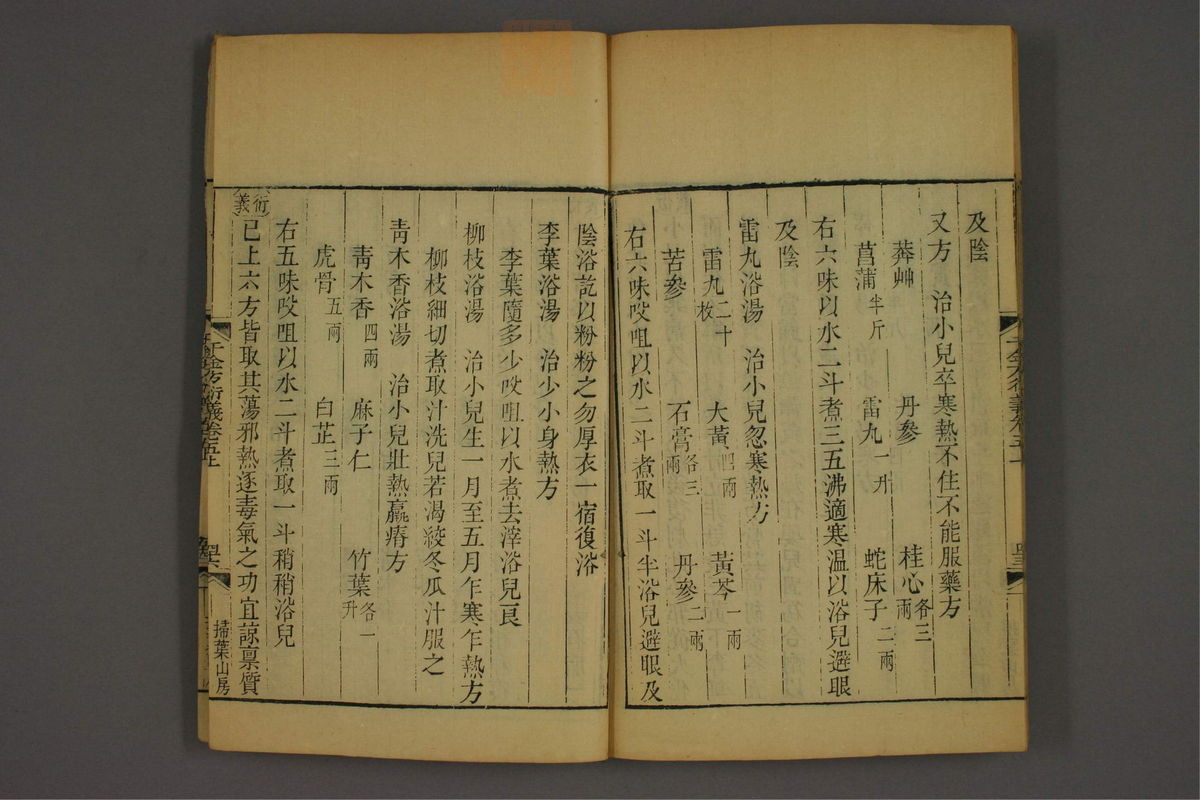 及陰
又方　治小兒卒寒熱不佳不能服藥方
莽艸　丹參　桂心各三兩
菖蒲半斤　雷丸一升　蛇床子二兩
右六味以水二斗煮三五沸適寒温以浴兒避眼
及陰
雷丸浴湯　治小兒忽寒熱方
雷丸二十枚　大黃四兩　黃芩一兩
苦參　石膏各三兩　丹參二兩
右六味㕮咀以水二斗煮取一斗半浴兒避眼及
陰浴訖以粉粉之勿厚衣一宿復浴
李葉浴湯　治少小身熱方
李葉隨多少㕮咀以水煮去滓浴兒良
柳枝浴湯　治小兒生一月至五月乍寒乍熱方
柳枝細切煮取汁洗兒若渴絞冬瓜汁服之
青木香浴湯　治小兒壯熱羸瘠方
青木香四兩　麻子仁　竹葉各一升
虎骨五兩　白芷三兩
右五味㕮咀以水二斗煮取一斗稍稍浴兒
衍義　已上六方皆取其蕩邪熱逐毒氣之功宜諒禀質
千金方衍義卷五上
掃葉山房